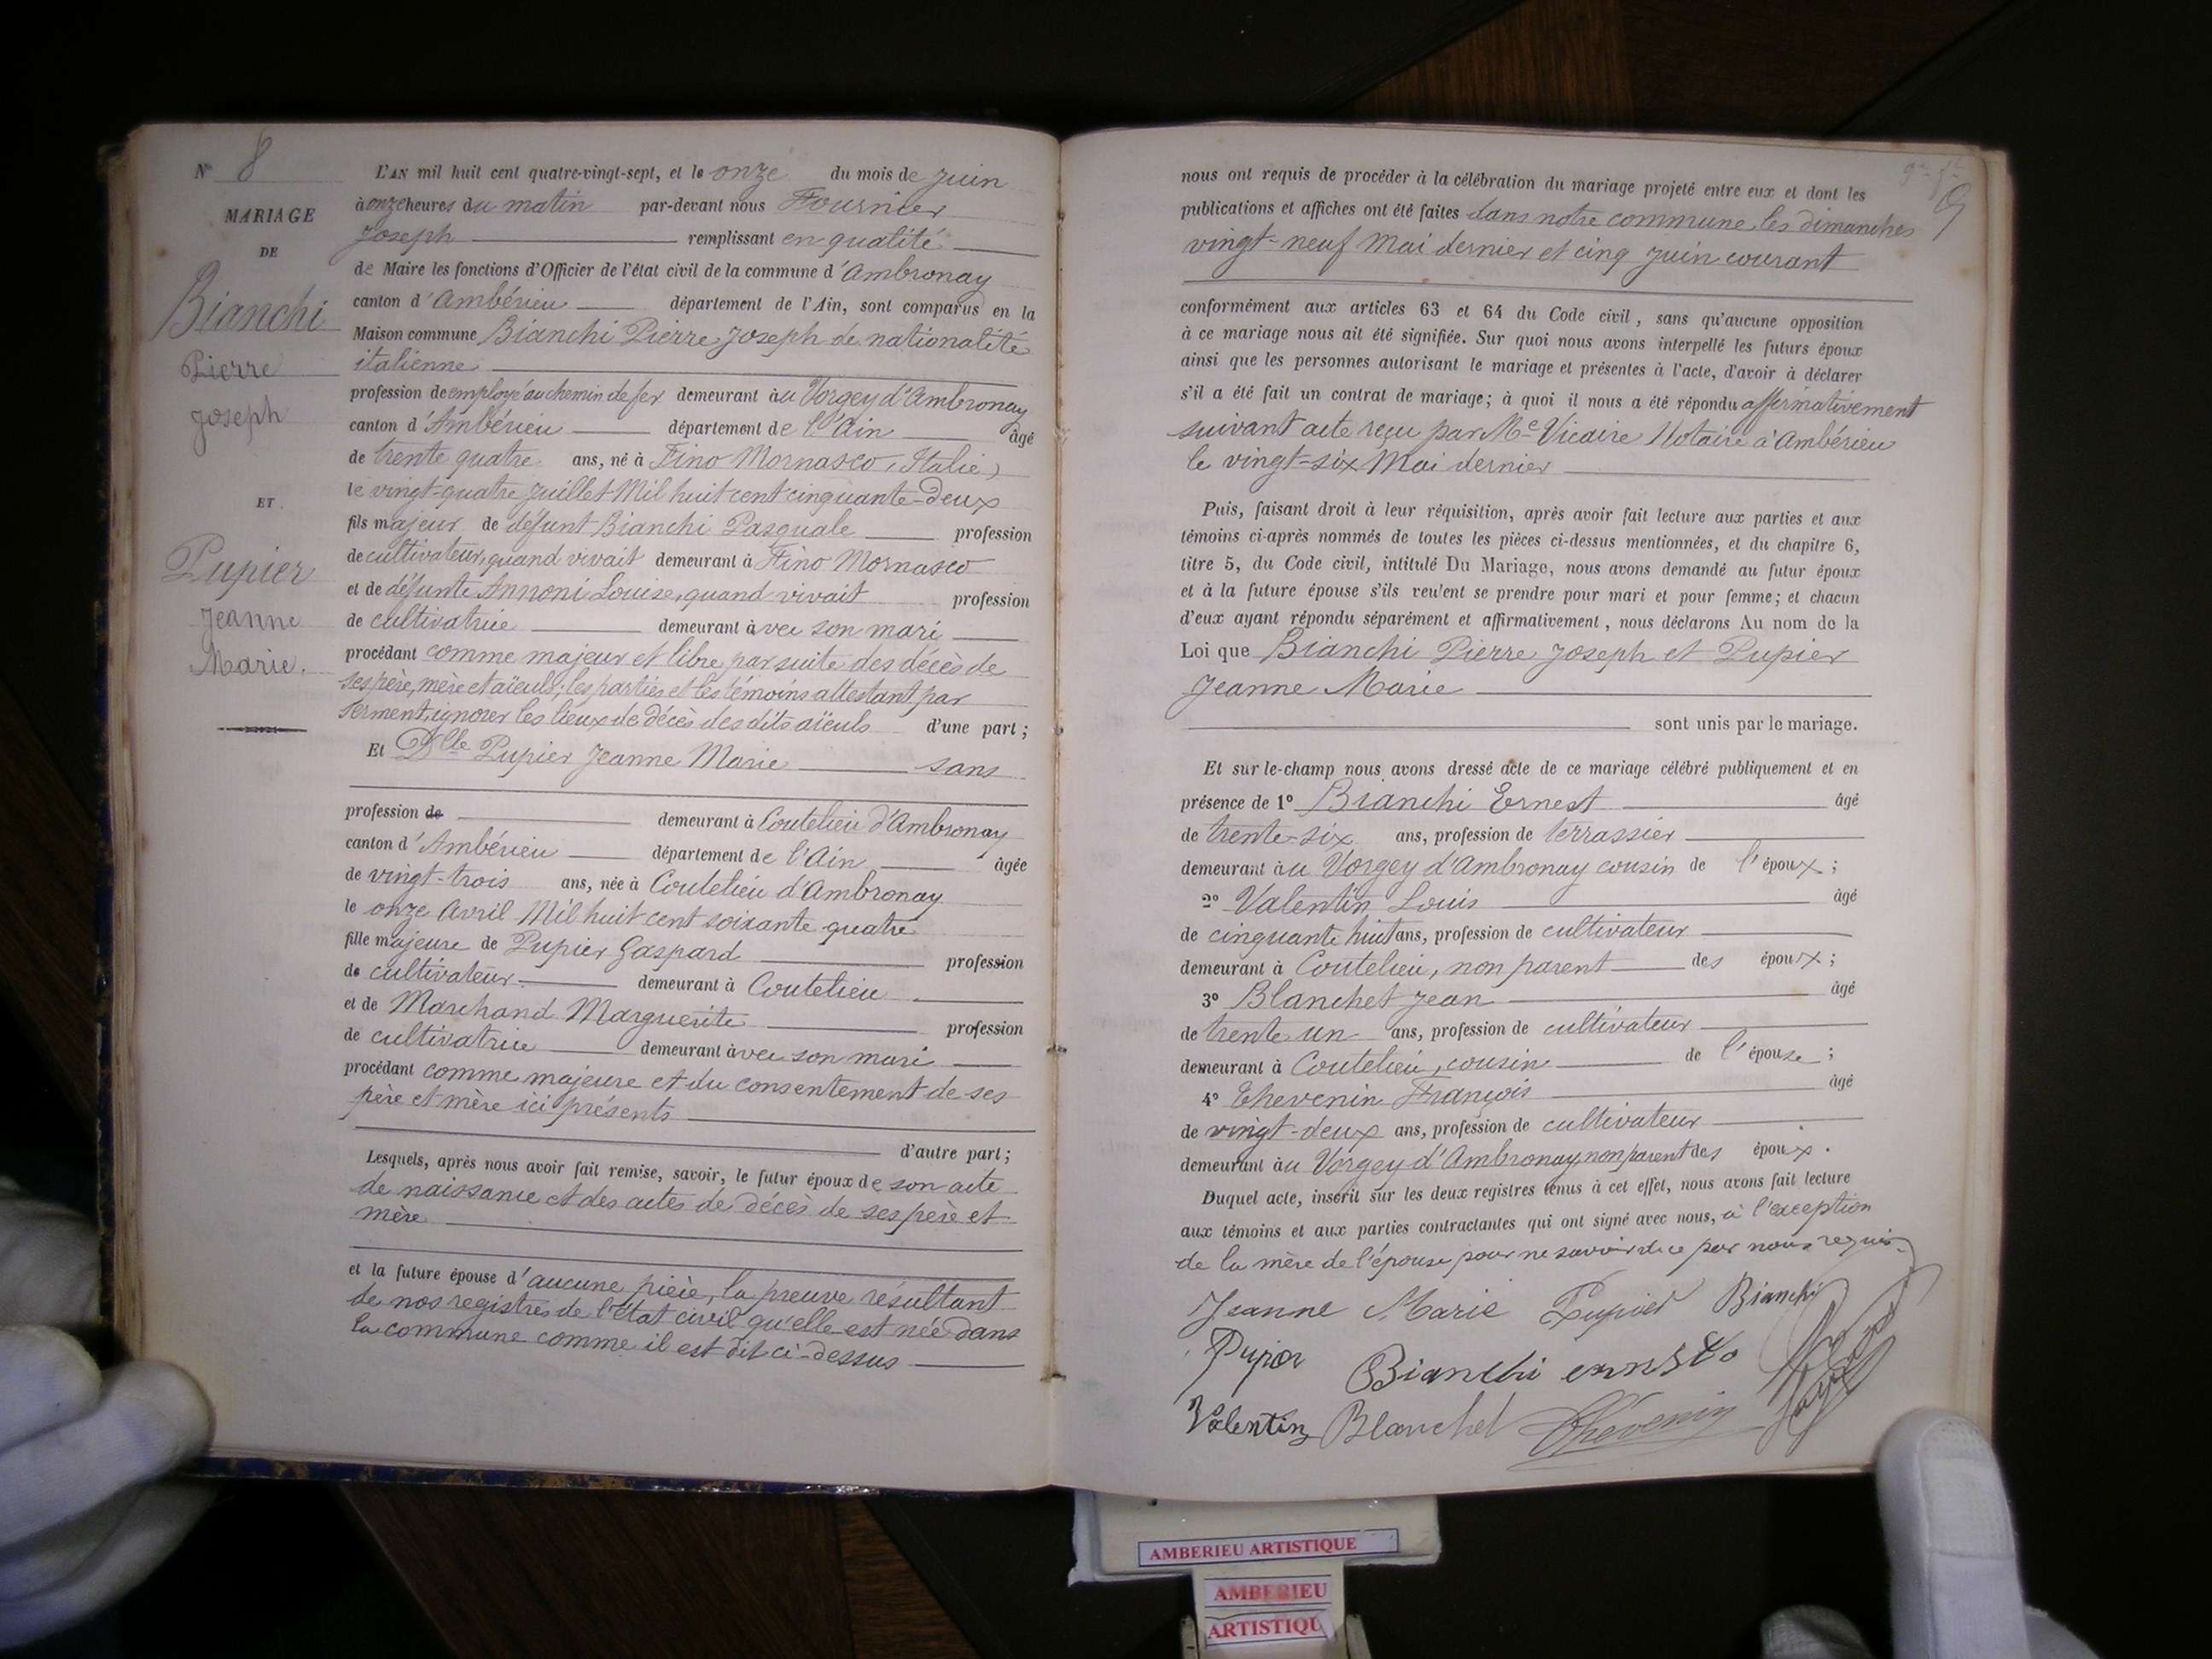 N° 8
MARIAGE
DE
Bianchi
Pierre
Joseph
ET
Pupier
Jeanne
Marie.
L'AN mil huit cent quatre-vingt-sept, et le onze du mois de Juin
à onze heures du matin par-devant nous Fournier
Joseph remplissant en qualité
de Maire les fonctions d'Officier de l'état civil de la commune d'Ambronay
canton d'Ambérieu département de l'Ain, sont comparus en la
Maison commune Bianchi Pierre Joseph de nationalité
italienne
profession de employé au chemin de fer demeurant au Vorgey d'Ambronay
canton d'Ambérieu département de l'Ain âgé
de trente quatre ans, né à Fino Mornasco (Italie)
le vingt-quatre Juillet Mil huit cent cinquante-deux
fils majeur de défunt Bianchi Pasquale profession
de cultivateur, quand vivait demeurant à Fino Mornasco
et de défunte Annoni Louise, quand vivait profession
de cultivatrice demeurant avec son mari
procédant comme majeur et libre par suite des décès de
ses père, mère et aïeuls; les parties et les témoins attestant par
serment, ignorer les lieux de décès des dits aïeuls d'une part;
Et Dlle Pupier Jeanne Marie sans
profession de demeurant à Coutelieu d'Ambronay
canton d'Ambérieu département de l'Ain âgée
de vingt-trois ans, née à Coutelieu d'Ambronay
le onze Avril Mil huit cent soixante quatre
fille majeure de Pupier Gaspard profession
de cultivateur demeurant à Coutelieu
et de Marchand Marguerite profession
de cultivatrice demeurant avec son mari
procédant comme majeure et du consentement de ses
père et mère ici présents
d'autre part;
Lesquels, après nous avoir fait remise, savoir, le futur époux de son acte
de naissance et des actes de décès de ses père et
mère
et la future épouse d'aucune pièce, la preuve résultant
de nos registres de l'état civil qu'elle est née dans
la commune comme il est dit ci-dessus
9
nous ont requis de procéder à la célébration du mariage projeté entre eux et dont les
publications et affiches ont été faites dans notre commune les dimanches
vingt-neuf Mai dernier et cinq Juin courant
conformément aux articles 63 et 64 du Code civil, sans qu'aucune opposition
à ce mariage nous ait été signifiée. Sur quoi nous avons interpellé les futurs époux
ainsi que les personnes autorisant le mariage et présentes à l'acte, d'avoir à déclarer
s'il a été fait un contrat de mariage; à quoi il nous a été répondu affirmativement
suivant acte reçu par Me Vicaire Notaire à Ambérieu
le vingt-six Mai dernier
Puis, faisant droit à leur réquisition, après avoir fait lecture aux parties et aux
témoins ci-après nommés de toutes les pièces ci-dessus mentionnées, et du chapitre 6,
titre 5, du Code civil, intitulé Du Mariage, nous avons demandé au futur époux
et à la future épouse s'ils veulent se prendre pour mari et pour femme; et chacun
d'eux ayant répondu séparément et affirmativement, nous déclarons Au nom de la
Loi que Bianchi Pierre Joseph et Pupier
Jeanne Marie
sont unis par le mariage.
Et sur-le-champ nous avons dressé acte de ce mariage célébré publiquement et en
présence de 1° Bianchi Ernest âgé
de trente-six ans, profession de terrassier
demeurant au Vorgey d'Ambronay cousin de l'époux;
2° Valentin Louis âgé
de cinquante huit ans, profession de cultivateur
demeurant à Coutelieu, non parent des époux;
3° Blanchet Jean âgé
de trente un ans, profession de cultivateur
demeurant à Coutelieu, cousin de l'épouse;
4° Thevenin François âgé
de vingt-deux ans, profession de cultivateur
demeurant au Vorgey d'Ambronay, non parent des époux.
Duquel acte, inscrit sur les deux registres tenus à cet effet, nous avons fait lecture
aux témoins et aux parties contractantes qui ont signé avec nous, à l'exception
de la mère de l'épouse pour ne savoir de ce par nous requis.
Jeanne Marie Pupier Bianchi
Pupier Bianchi ernesto
Valentin Blanchet Thévenin
AMBERIEU ARTISTIQUE
AMBERIEU
ARTISTIQU